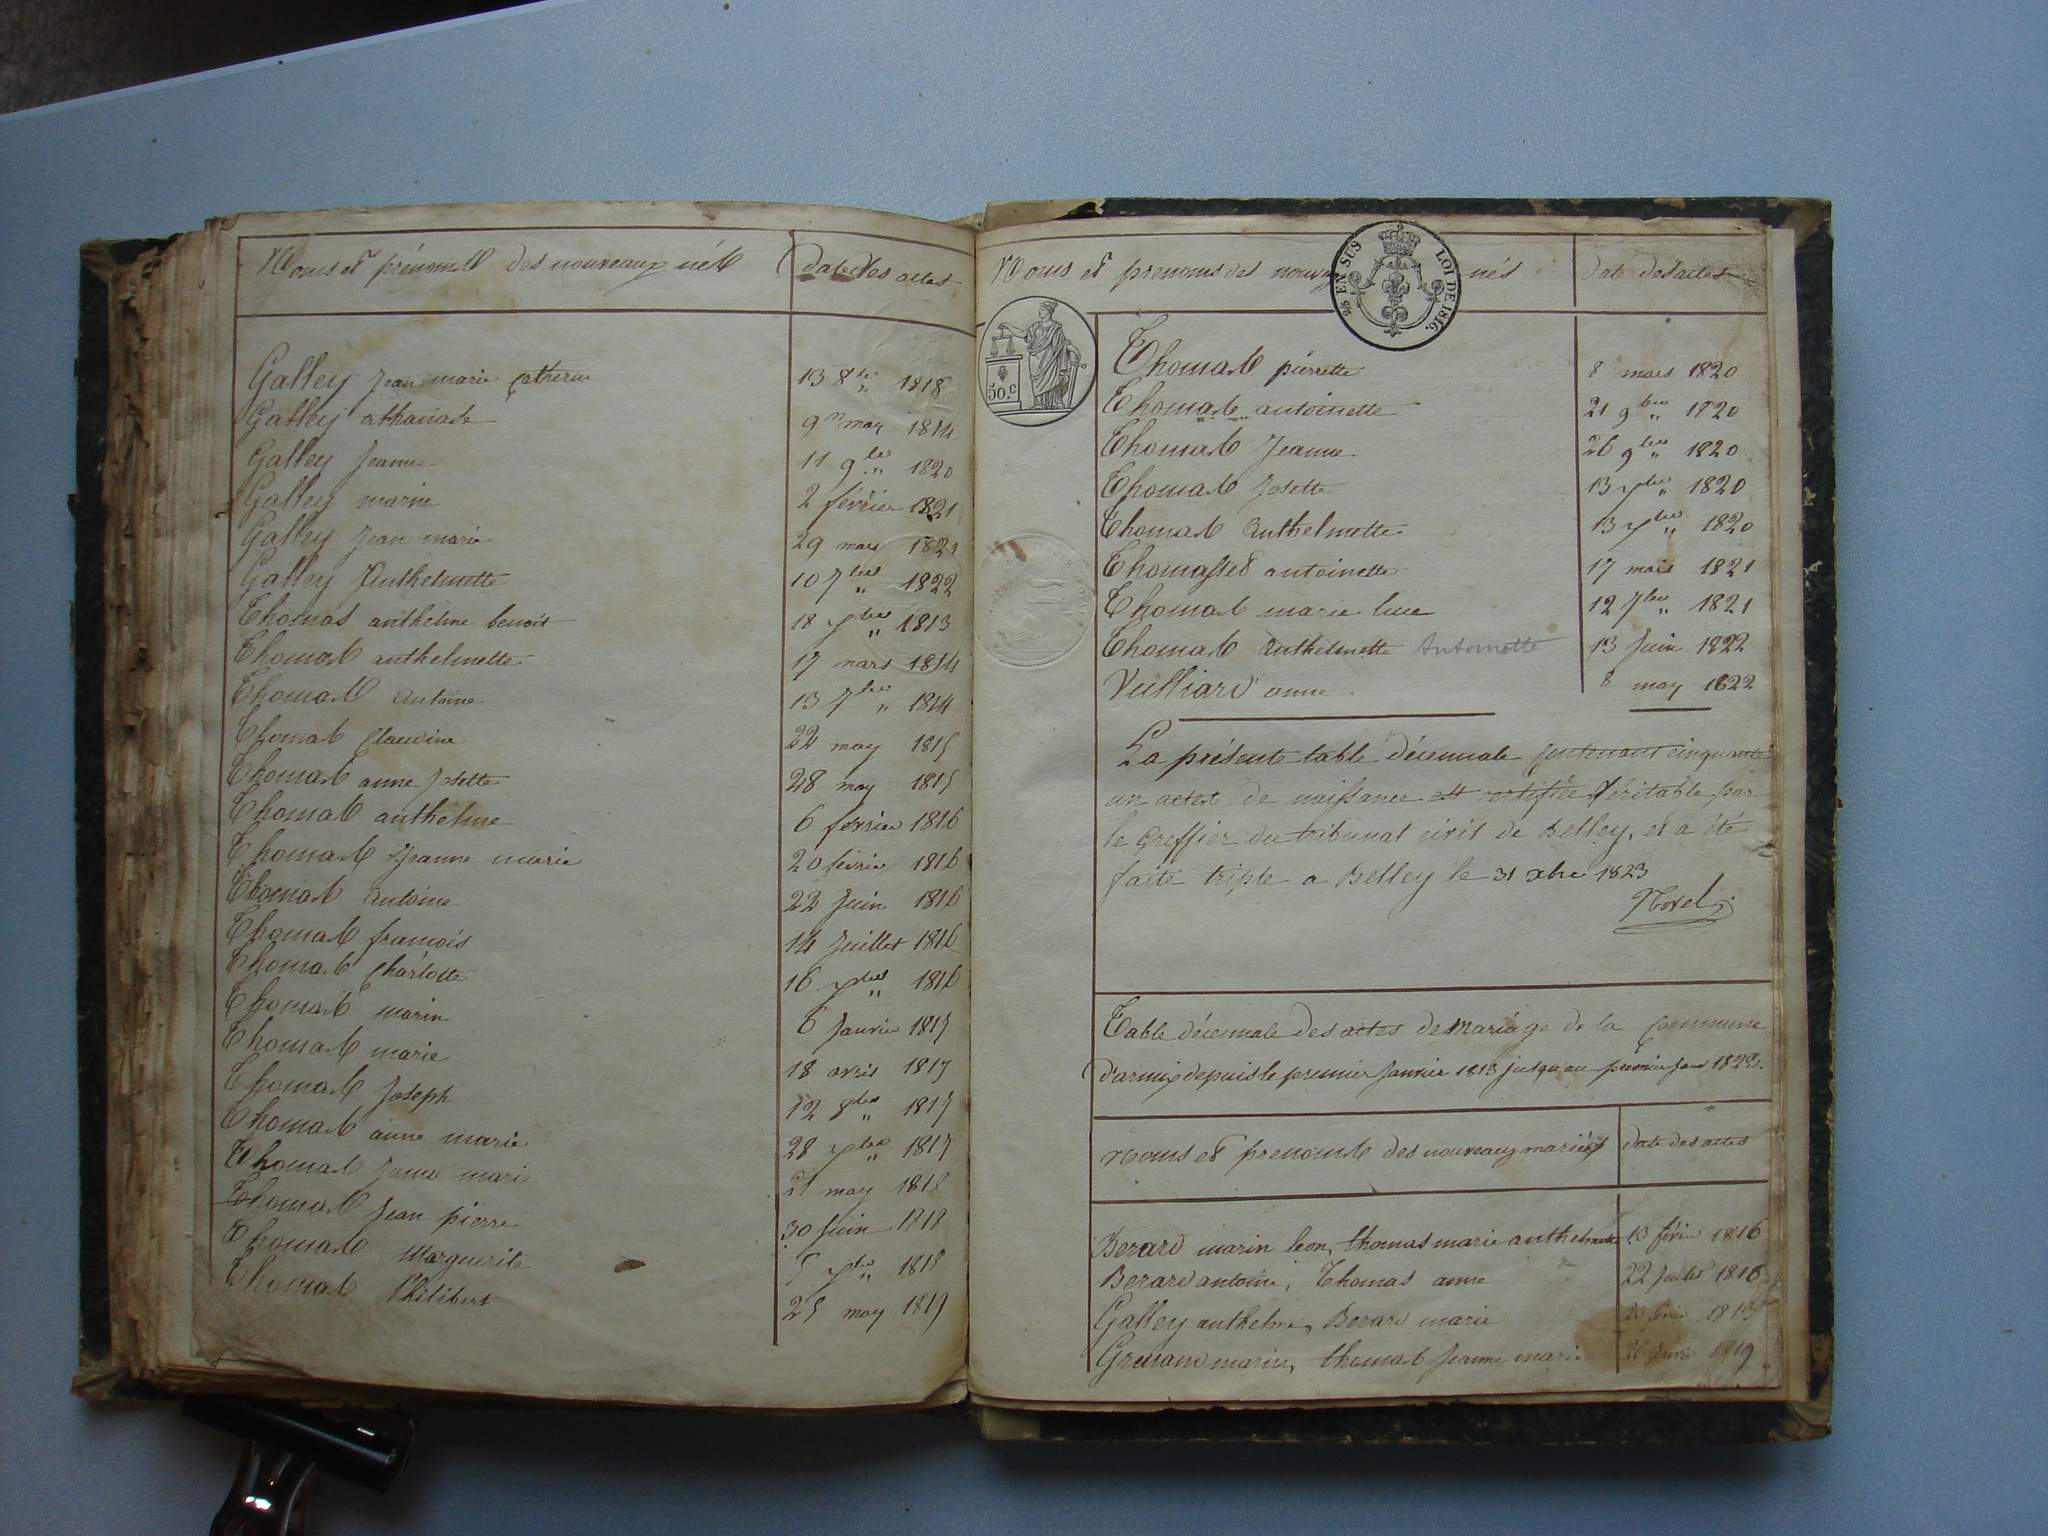 Noms et prénoms des nouveaux nés date des actes
Galley Jean marie Catherin 13 8bre 1818
Galley athanase 9 may 1814
Galley Jeanne 11 9bre 1820
Galley marin 2 février 1821
Galley Jean marie 29 mars 1822
Galley Anthelmette 10 7bre 1822
Thomas anthelme benoit 18 1813
Thomas anthelmette 17 mars 1814
Thomas Antoine 13 7bre 1814
Thomas Claudine 22 may 1815
Thomas anne Josette 28 may 1815
Thomas anthelme 6 février 1816
Thomas Jeanne marie 20 février 1816
Thomas antoine 22 Juin 1816
Thomas francois 14 Juillet 1816
Thomas Charlotte 16 1816
Thomas marin 6 Janvier 1817
Thomas marie 18 avril 1817
Thomas Joseph 12 1817
Thomas anne marie 28 1817
Thomas marie 21 may 1818
Thomas Jean pierre 30 Juin 1818
Thomas Marguerite 5 1818
Thomas Philibert 25 may 1819
Noms et prenoms des nés date des actes
2/5 EN SUS LOI DE 1816.
50.C
Thomas pierrette 8 mars 1820
Thomas antoinette 21 9bre 1820
Thomas Jeanne 26 9bre 1820
Thomas Josette 13 1820
Thomas Anthelmette 13 1820
Thomasset antoinette 17 mars 1821
Thomas marie luce 12 7bre 1821
Thomas Anthelmette Antoinette 13 Juin 1822
Vulliard anne 8 may 1822
La présente table décennale contenant cinquante
un actes de naissance est certifiée véritable par
le Greffier du tribunal civil de Belley, et a été
faite triple a Belley le 31 xbre 1823
Table décennale des actes de Mariage de la Commune
d'armix depuis le premier Janvier 1813 jusqu'au premier Janv 1823.
noms et prenoms des nouveaux mariés date des actes
Berard marin leon, thomas marie anthelmette 13 févrie 1816
Berard antoine, Thomas anne 22 Juillet 1816
Galley anthelme, Berard marie
marin, thomas Jeanne marie 1819